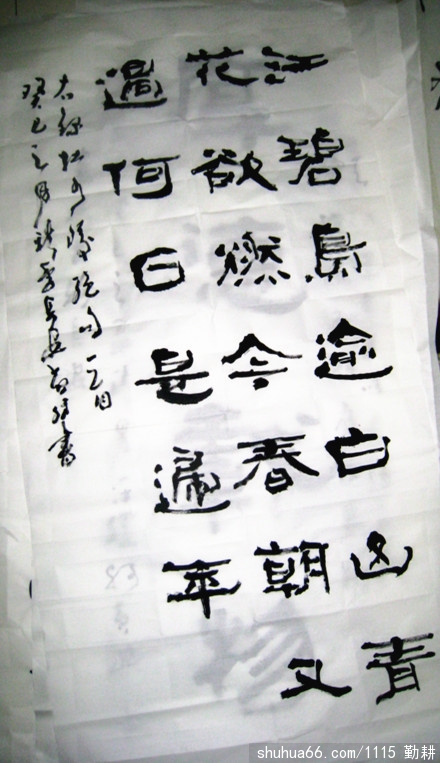 江碧鳥逾白山青
花欲燃今春朝又
過何日是年
右錄杜甫詩絕句一首
癸巳之月書
shuhua66.com/1115 勤耕